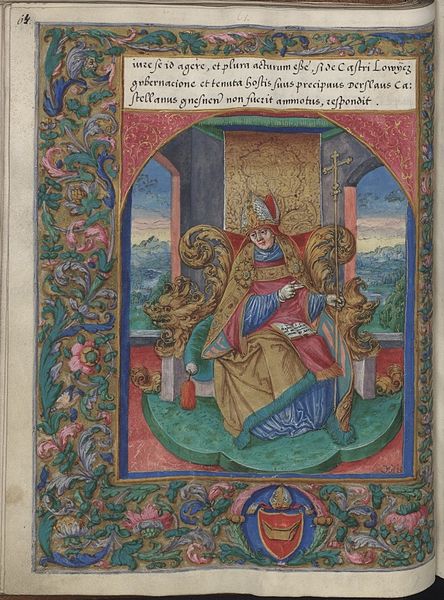 64
iure se id agere, et plura acturum esse, si de Castri Lowycz
gvbernacione et tenuta hostis suus precipuus Derslaus Ca-
stellanus gnesnen non fuerit ammotus, respondit .